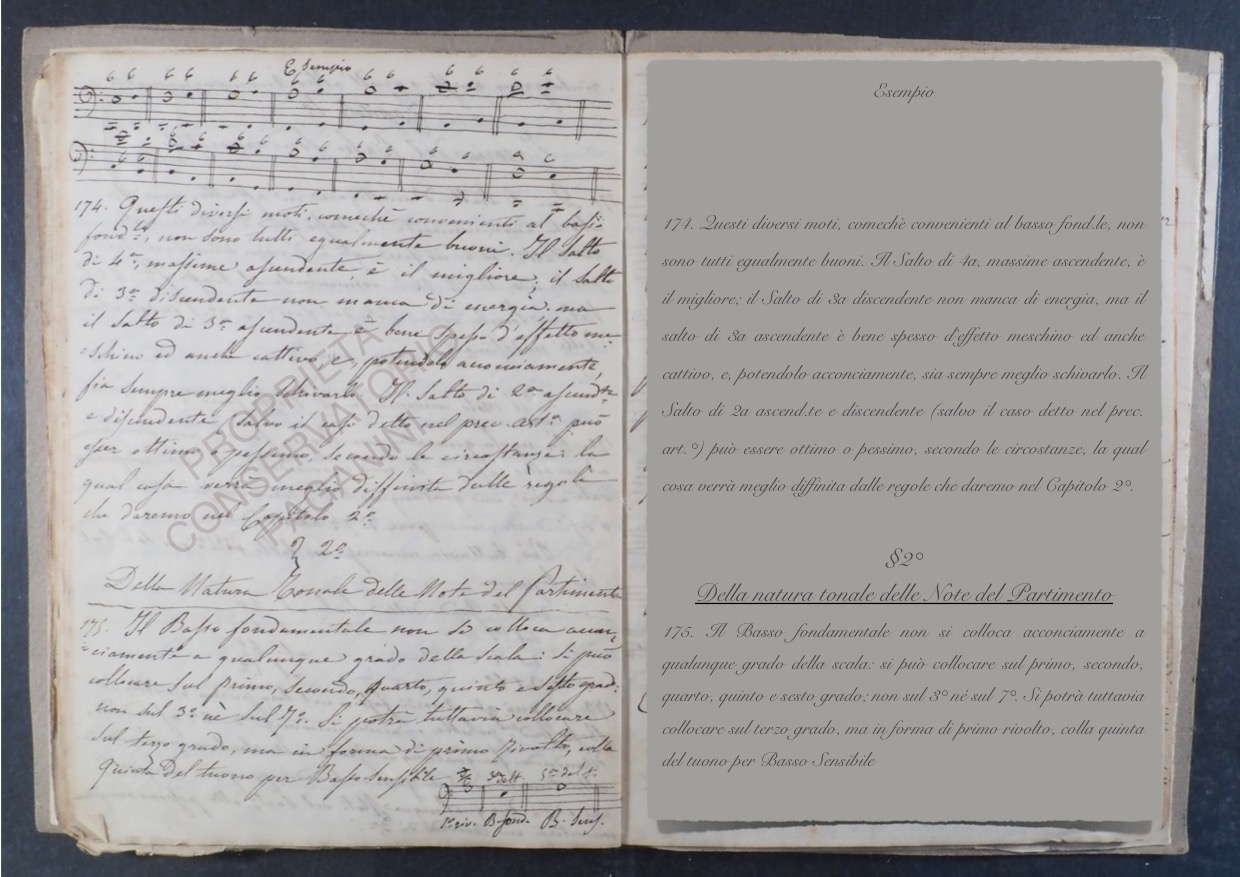 Esempio
6 6 6 6 6 6 6 6 6 6 6 6 6 6
174. Questi diversi moti, comechè convenienti al basso
fond.le, non sono tutti egualmente buoni. Il Salto
di 4a, massime ascendente, è il migliore; il salto
di 3a discendente non manca di energia, ma
il salto di 3a ascendente è bene spesso d'effetto me=
=schino ed anche cattivo, e, potendolo acconciamente,
sia sempre meglio schivarlo. Il Salto di 2a ascend.te
e discendente (salvo il caso detto nel prec. art.o) può
esser ottimo o pessimo, secondo le circostanze: la
qual cosa verrà meglio diffinita dalle regole
che daremo nel Capitolo 2o.
§ 2o
Della Natura Tonale delle Note del Partimento
175. Il Basso fondamentale non si colloca accon=
=ciamente a qualunque grado della scala: si può
collocare sul primo, secondo, quarto, quinto e sesto grado:
non sul 3o nè sul 7o. Si potrà tuttavia collocare
sul terzo grado, ma in forma di primo rivolto, colla
quinta del tuono per Basso Sensibile
1o riv. B. fond. B. Sens.
PROPRIETÀ
CONSERVATORIO
PAGANINI
Esempio
174. Questi diversi moti, comechè convenienti al basso fond.le, non
sono tutti egualmente buoni. Il Salto di 4a, massime ascendente, è
il migliore; il Salto di 3a discendente non manca di energia, ma il
salto di 3a ascendente è bene spesso d'effetto meschino ed anche
cattivo, e, potendolo acconciamente, sia sempre meglio schivarlo. Il
Salto di 2a ascend.te e discendente (salvo il caso detto nel prec.
art.°) può essere ottimo o pessimo, secondo le circostanze, la qual
cosa verrà meglio diffinita dalle regole che daremo nel Capitolo 2°.
§2°
Della natura tonale delle Note del Partimento
175. Il Basso fondamentale non si colloca acconciamente a
qualunque grado della scala: si può collocare sul primo, secondo,
quarto, quinto e sesto grado; non sul 3° né sul 7°. Si potrà tuttavia
collocare sul terzo grado, ma in forma di primo rivolto, colla quinta
del tuono per Basso Sensibile